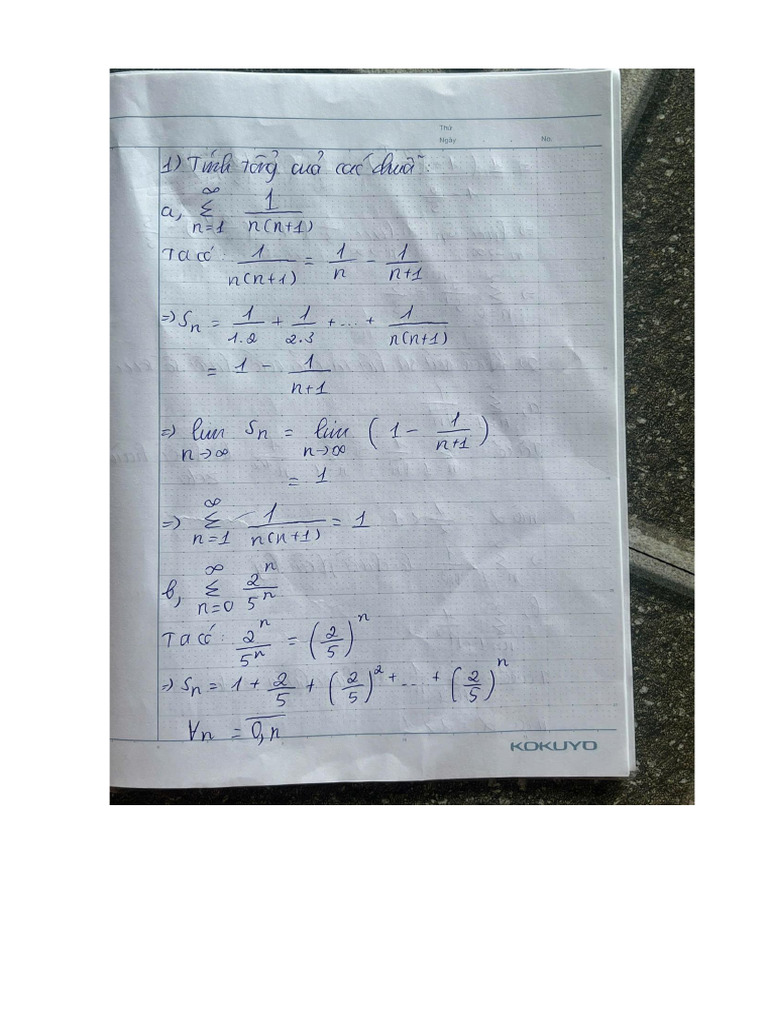 Thứ
Ngày No.
1) Tính tổng của các chuỗi:
a, ∞ Σ n=1 1/(n(n+1))
Ta có: 1/(n(n+1)) = 1/n - 1/(n+1)
=> Sn = 1/(1.2) + 1/(2.3) + ... + 1/(n(n+1))
= 1 - 1/(n+1)
=> lim n→∞ Sn = lim n→∞ (1 - 1/(n+1))
= 1
=> ∞ Σ n=1 1/(n(n+1)) = 1
b, ∞ Σ n=0 2^n/5^n
Ta có: 2^n/5^n = (2/5)^n
=> Sn = 1 + 2/5 + (2/5)^2 + ... + (2/5)^n
∀n = 0,n
KOKUYO